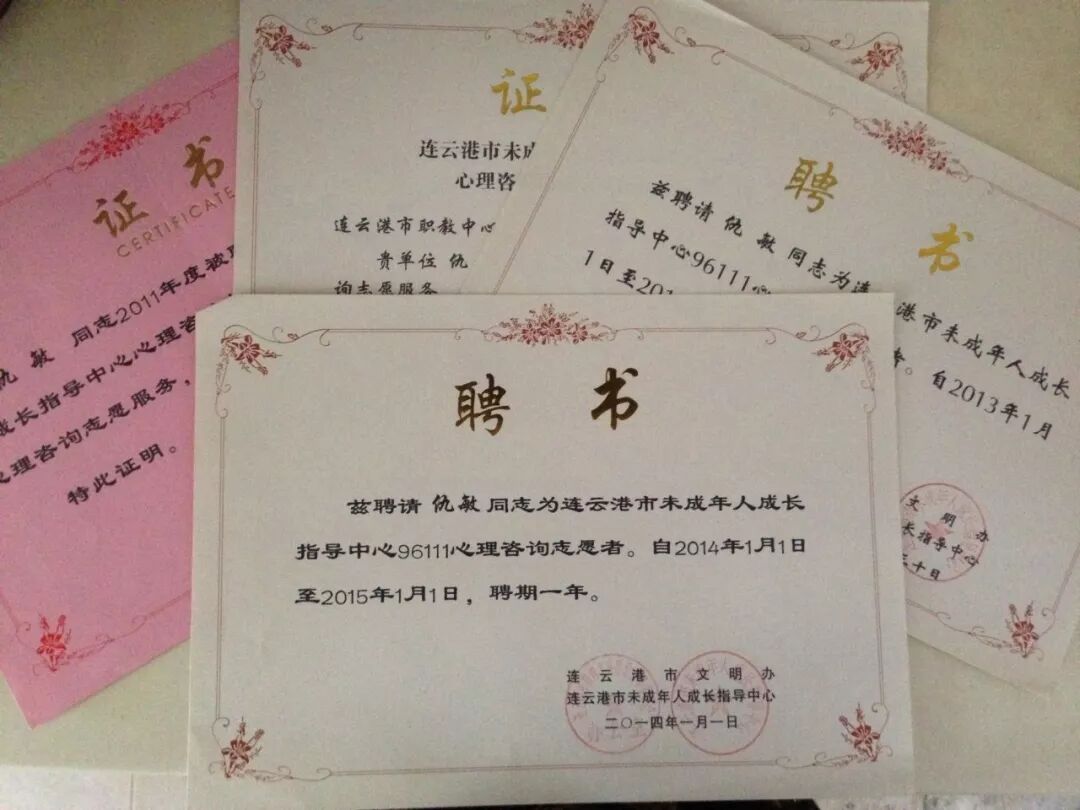 证 书
CERTIFICATE
仇 敏 同志2011年度被
成长指导中心心理咨
心理咨询志愿服务，
特此证明。
证
连云港市未成
心理咨
连云港市职教中心
贵单位 仇
询志愿服务
聘 书
兹聘请 仇 敏 同志为连
港市未成年人成长
指导中心96111心
。自2013年1月
1日至201
文 明 办
长指导中心
三十日
聘 书
兹聘请 仇敏 同志为连云港市未成年人成长
指导中心96111心理咨询志愿者。自2014年1月1日
至2015年1月1日，聘期一年。
连 云 港 市 文 明 办
连云港市未成年人成长指导中心
二〇一四年一月一日